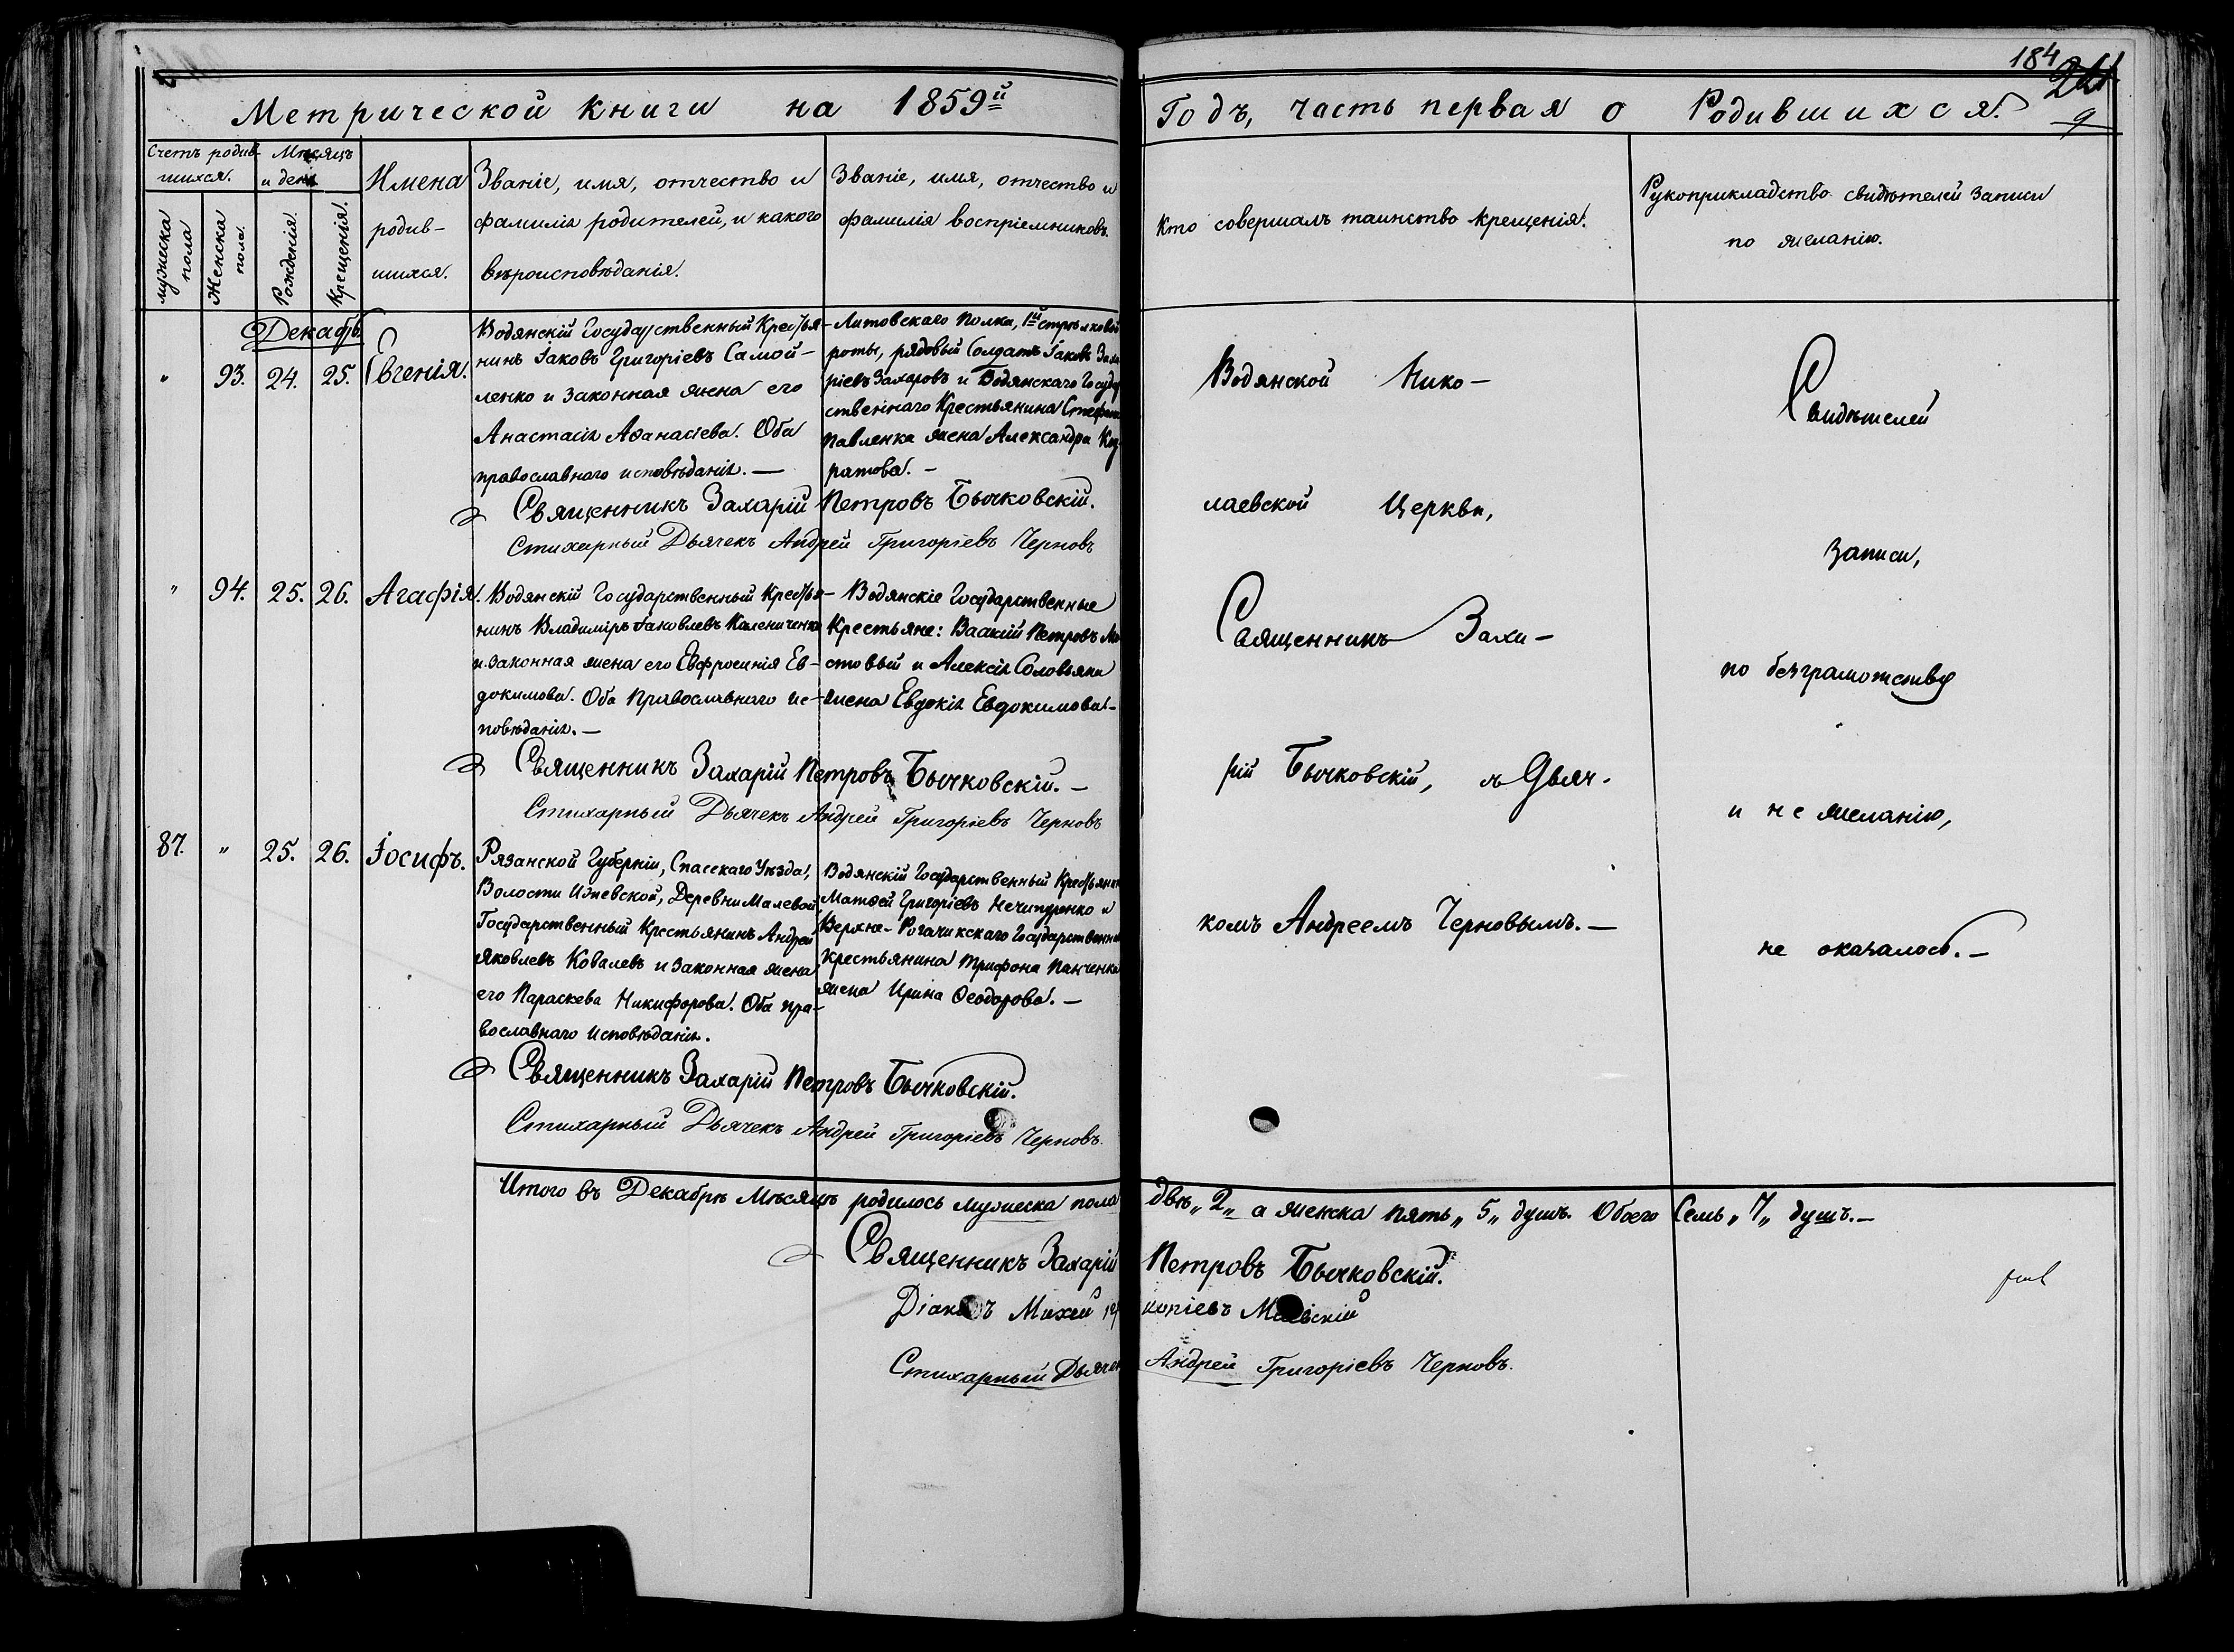 184
241
9
Метрической книги на 1859й
Годъ, часть первая о Родившихся.
Счетъ родив-
шихся.
мужеска
пола
Женска
пола.
Мѣсяцъ
и день
Рожденія.
Крещенія.
Имена
родив-
шихся.
Званіе, имя, отчество и
фамилія родителей, и какого
вѣроисповѣданія.
Званіе, имя, отчество и
фамилія воспріемниковъ.
Кто совершалъ таинство крещенія.
Рукоприкладство свидѣтелей записи
по желанію.
Декабрь
" 93. 24. 25. Евгенія.
Водянскій Государственный Крестья-
нинъ Іаковъ Григоріевъ Самой-
ленко и законная жена его
Анастасія Аѳанасіева. Оба
православнаго исповѣданія. —
Литовскаго Полка, 1й стрѣлковой
роты, рядовый Солдатъ Іаковъ
ріевъ Захаровъ и Водянскаго Госуда
ственнаго Крестьянина Стефана
Павленка жена Александра
ратова. -
Священникъ Захарій Петровъ Бычковскій.
Стихарный Дьячекъ Андрей Григоріевъ Черновъ
" 94. 25. 26. Агафія.
Водянскій Государственный Крестья-
нинъ Владиміръ Іаковлевъ Калениченко
и законная жена его Евфросинія Ев-
докимова. Оба Православнаго ис-
повѣданія. —
Водянскіе Государственные
Крестьяне: Ваакій Петровъ
стовый и Алексія Соловьяна
жена Евдокія Евдокимова. -
Священникъ Захарій Петровъ Бычковскій. -
Стихарный Дьячекъ Андрей Григоріевъ Черновъ
87. " 25. 26. Іосифъ.
Рязанской Губерніи, Спасскаго Уѣзда,
Волости Ижевской, Деревни Малевой
Государственный Крестьянинъ Андрей
Яковлевъ Ковалевъ и законная жена
его Параскева Никифорова. Оба пра-
вославнаго исповѣданія.
Водянскій Государственный Крестьянин
Матѳей Григоріевъ Нечипуренко и
Верхне-Рогачикскаго Государственна
крестьянина Трифона Панченка
жена Ирина Ѳеодорова. -
Священникъ Захарій Петровъ Бычковскій.
Стихарный Дьячекъ Андрей Григоріевъ Черновъ.
Водянской Нико-
лаевской Церкви,
Священникъ Заха-
рій Бычковскій, съ Дьяч-
комъ Андреемъ Черновымъ. —
Свидѣтелей
записи,
по безграмотству
и не желанію,
не оказалось. -
Итого въ Декабрѣ Мѣсяцѣ родилось мужеска пола двѣ „2„ а женска пять „5„ душъ. Обоего Семь „7„ душъ. —
Священникъ Захарій Петровъ Бычковскій.
Діаконъ Михей
Стихарный Дьячек Андрей Григоріевъ Черновъ.